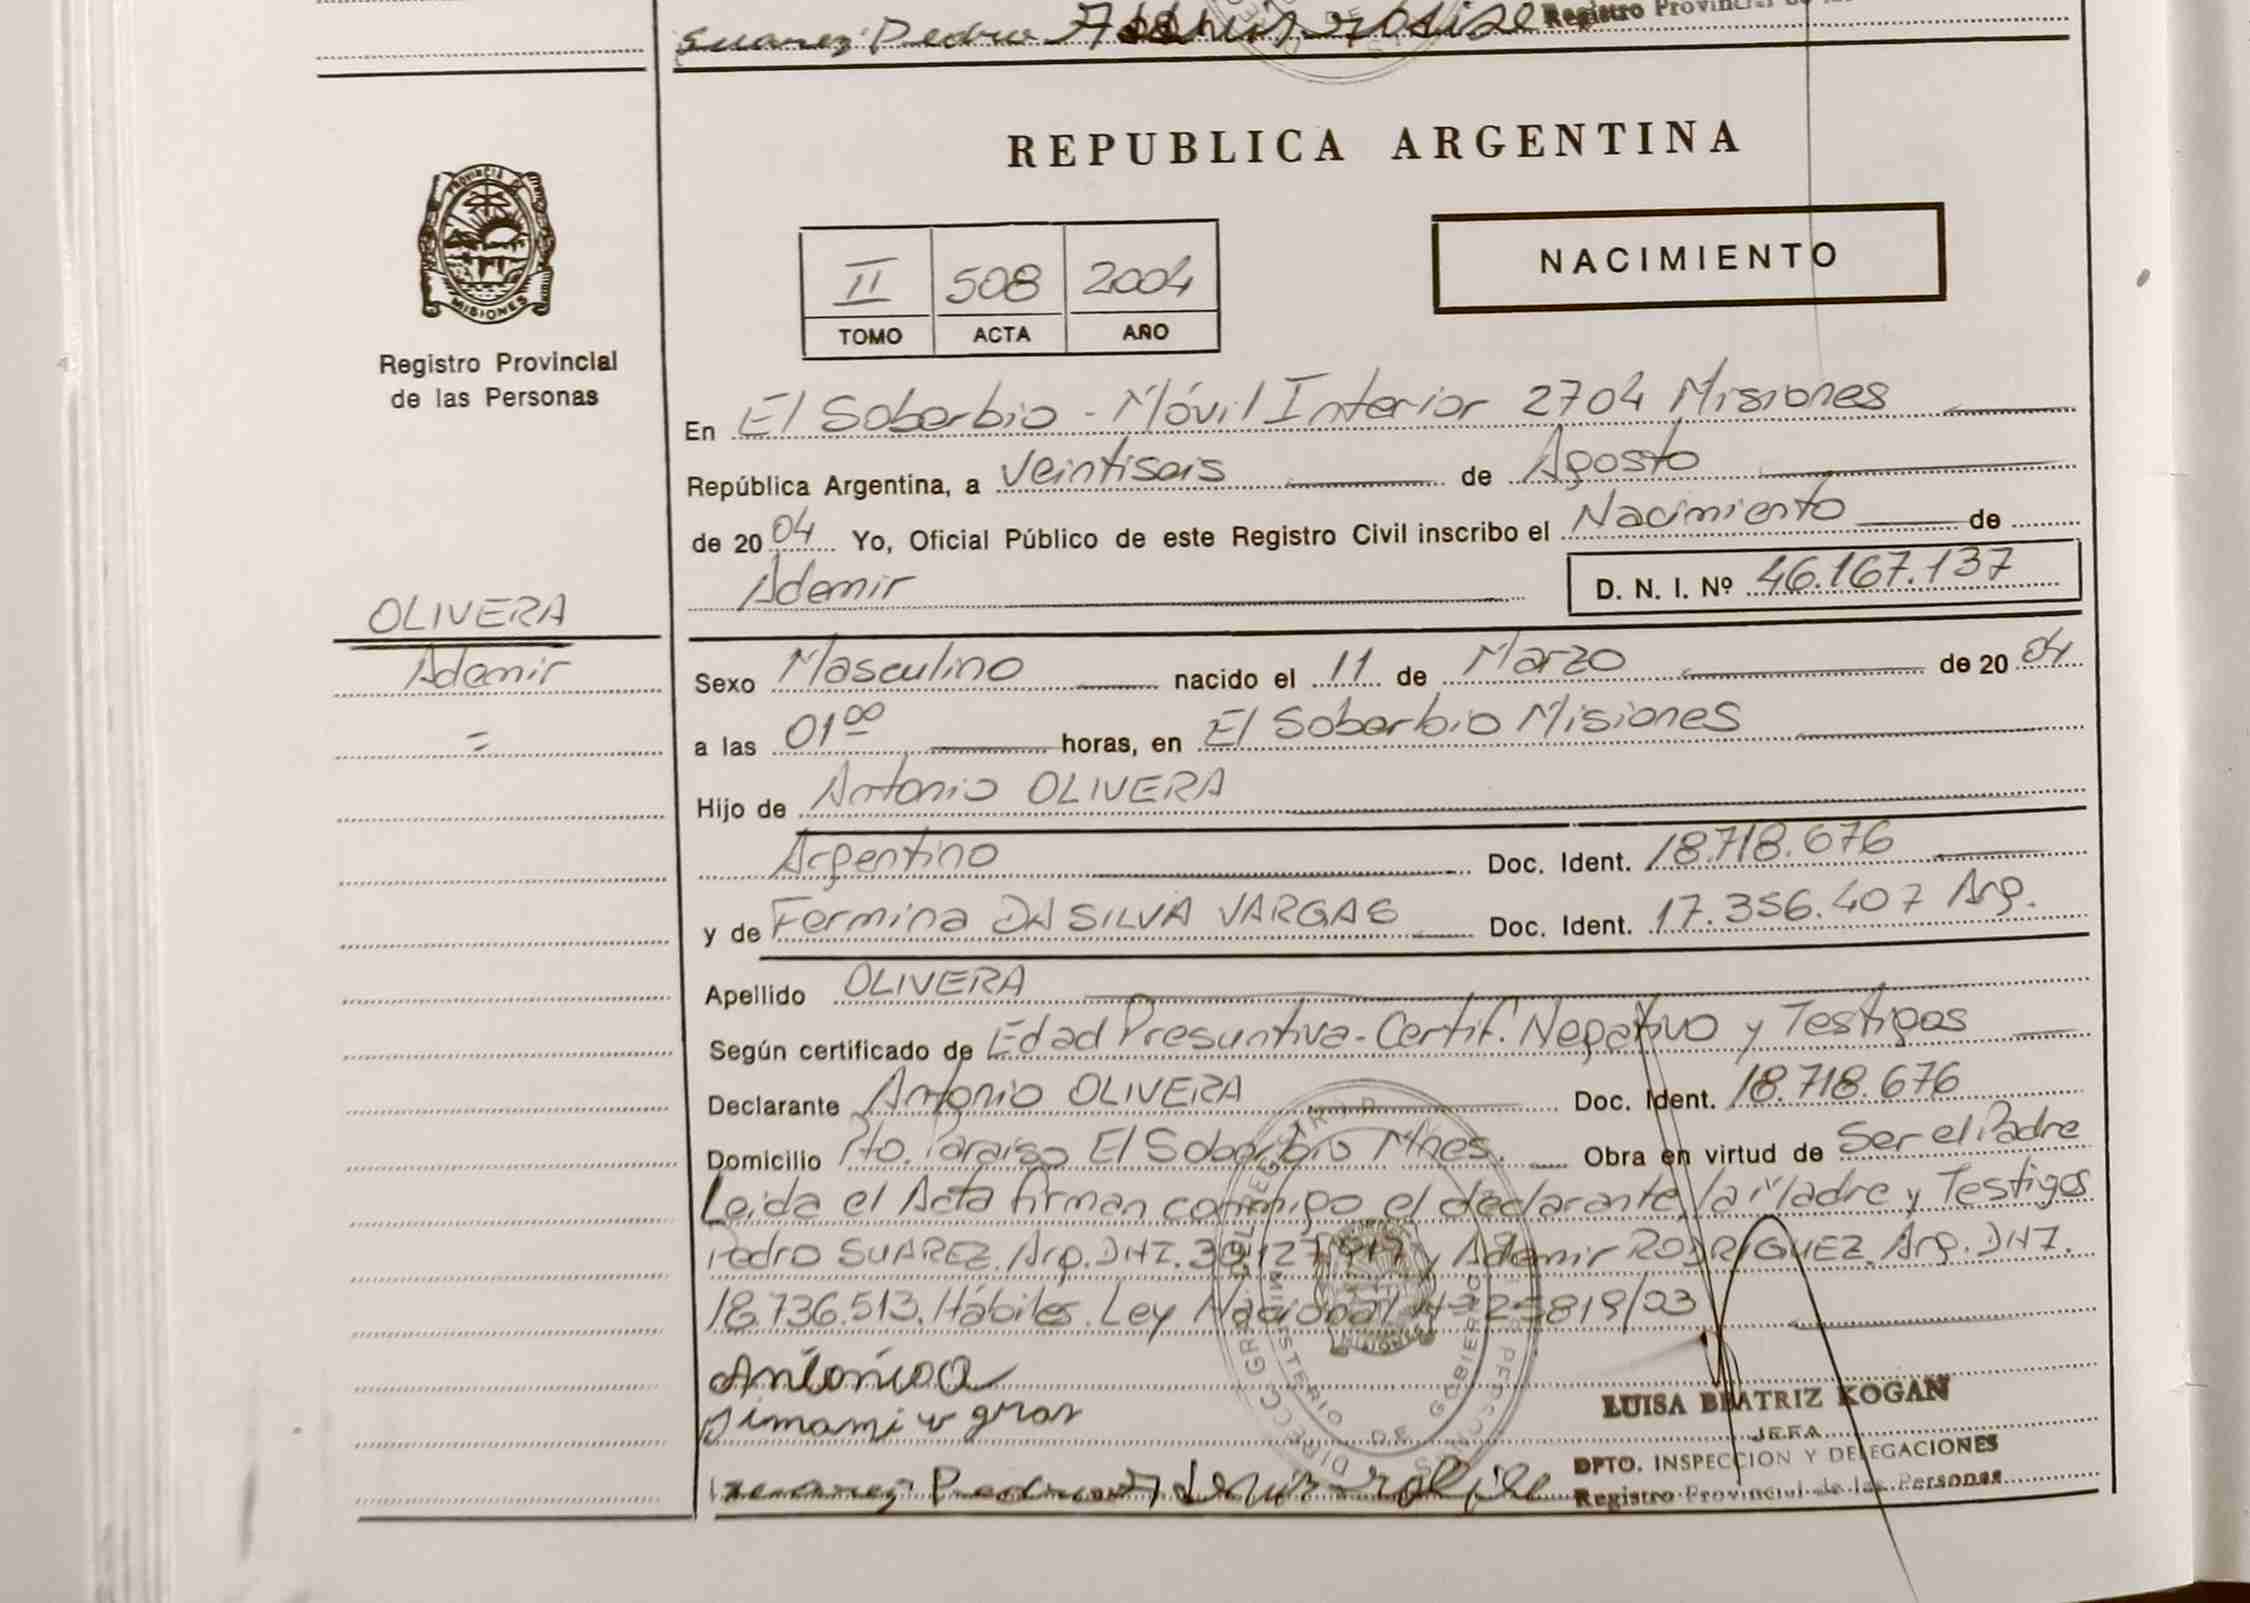 Suarez Pedro
Registro Provincial de las
REPUBLICA ARGENTINA
PROVINCIA DE
MISIONES
Registro Provincial
de las Personas
II 508 2004
TOMO ACTA AÑO
NACIMIENTO
En El Soberbio - Móvil Interior 2704 Misiones
República Argentina, a Veintiseis de Agosto
de 2004 Yo, Oficial Público de este Registro Civil inscribo el Nacimiento de
Ademir D. N. I. Nº 46.167.137
OLIVERA
Ademir
=
Sexo Masculino nacido el 11 de Marzo de 2004
a las 01 00 horas, en El Soberbio Misiones
Hijo de Antonio OLIVERA
Argentino Doc. Ident. 18.718.676
y de Fermina DA SILVA VARGAS Doc. Ident. 17.356.407 Arg.
Apellido OLIVERA
Según certificado de Edad Presuntiva - Certif. Negativo y Testigos
Declarante Antonio OLIVERA Doc. Ident. 18.718.676
Domicilio Pto. Paraiso El Soberbio Mnes. Obra en virtud de Ser el Padre
Leida el Acta firman conmigo el declarante, la Madre y Testigos
Pedro SUAREZ. Arg. DNI. y Ademir RODRIGUEZ. Arg. DNI.
18.736.513. Hábiles. Ley Nacional Nº 25819/03
Antonio O
LUISA BEATRIZ KOGAN
JEFA
DPTO. INSPECCION Y DELEGACIONES
Registro Provincial de las Personas
Suarez Pedro